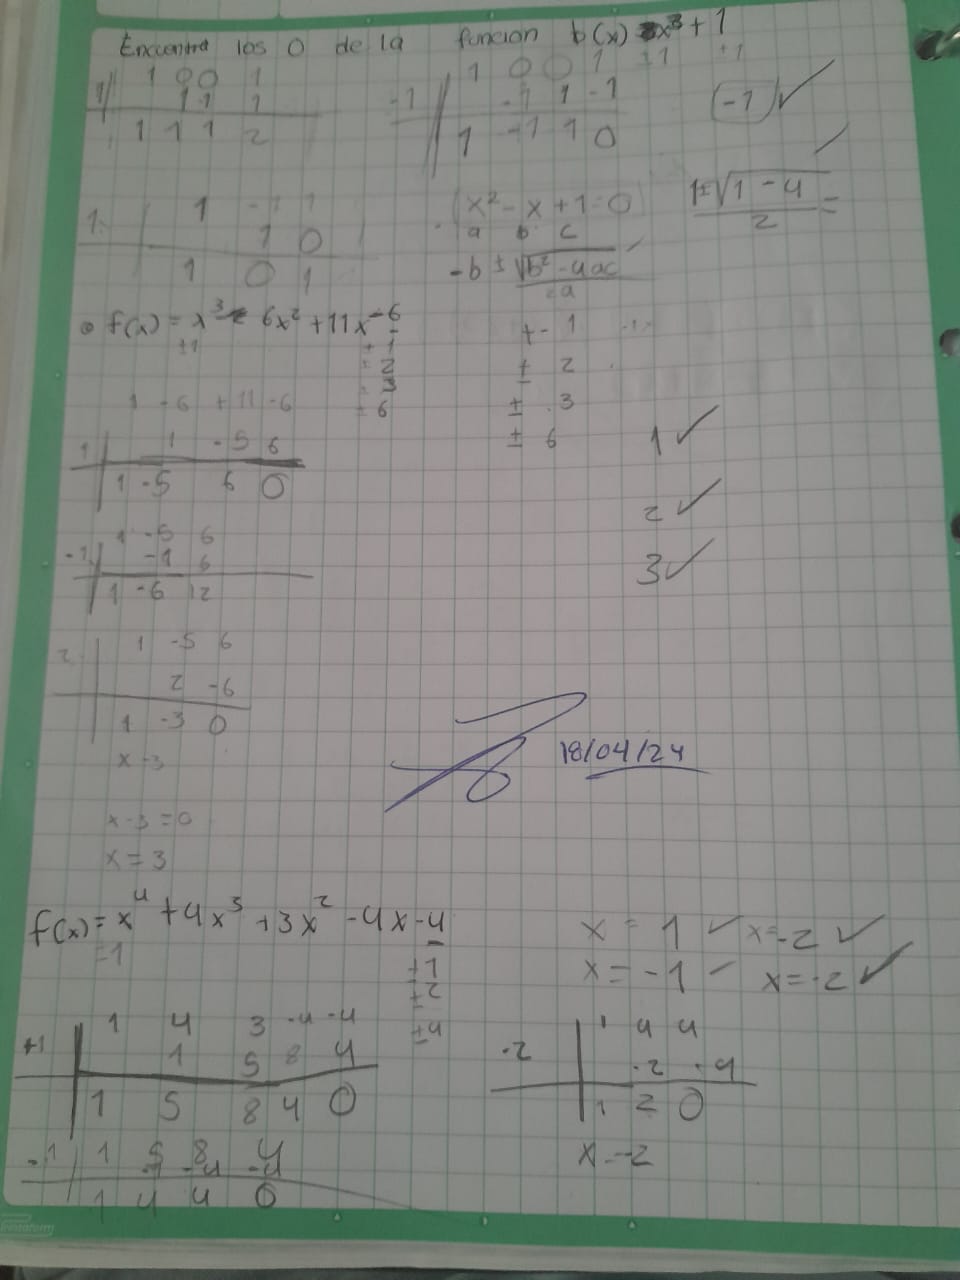 Encuentra los 0 de la funcion b(x) x³ + 1
±1 ±1
1 0 0 1
1 1 1 1
1 1 1 2
1 0 0 1
-1 -1 1 -1
1 -1 1 0
-1 ✓
1 1 -1 1
1 0
1 0 1
(x² - x + 1 = 0)
a b c
-b ± √b² - 4ac
2a
1±√1 - 4 =
2
• f(x) = x³ - 6x² + 11x - 6
±1
± 1
± 2
± 3
± 6
+- 1
± 2
± 3
± 6
1 ✓
2 ✓
3 ✓
1 -6 +11 -6
1 1 -5 6
1 -5 6 0
1 -5 6
-1 -1 6
1 -6 12
2 1 -5 6
2 -6
1 -3 0
x -3
x - 3 = 0
x = 3
18/04/24
f(x) = x⁴ + 4x³ + 3x² - 4x - 4
=1
±1
±2
±4
x = 1 ✓ x=-2 ✓
x = -1 x=-2 ✓
1 4 3 -4 -4
+1 1 5 8 4
1 5 8 4 0
-1 1 5 8 4
-1 -4 -4
1 4 4 0
1 4 4
-2 -2 -4
1 2 0
x = -2